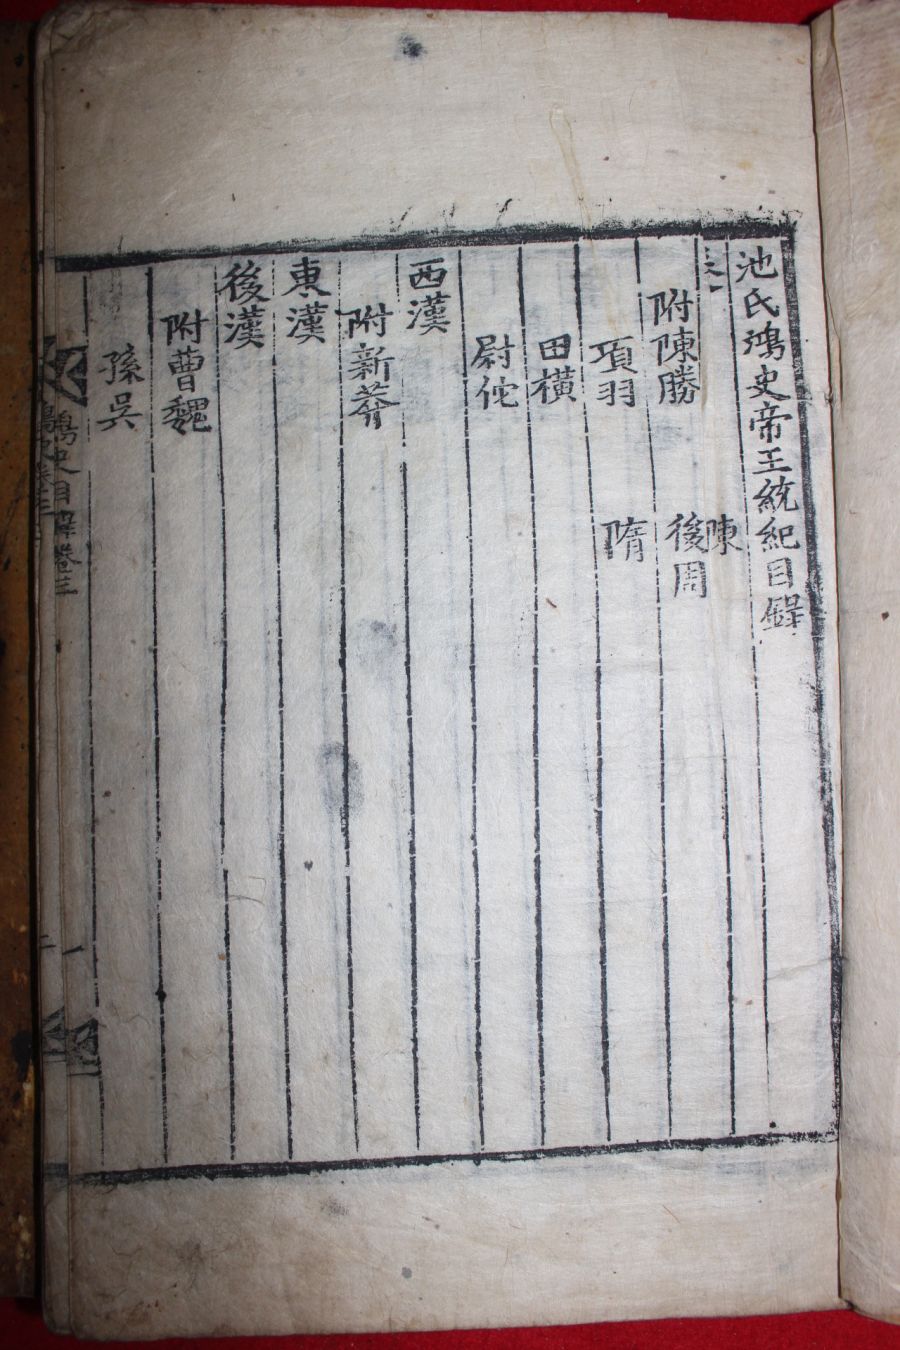 池氏鴻史帝王統紀目錄
陳
附陳勝 後周
項羽 隋
田橫
尉佗
西漢
附新莽
東漢
後漢
附曹魏
孫吳
鴻史目錄卷三